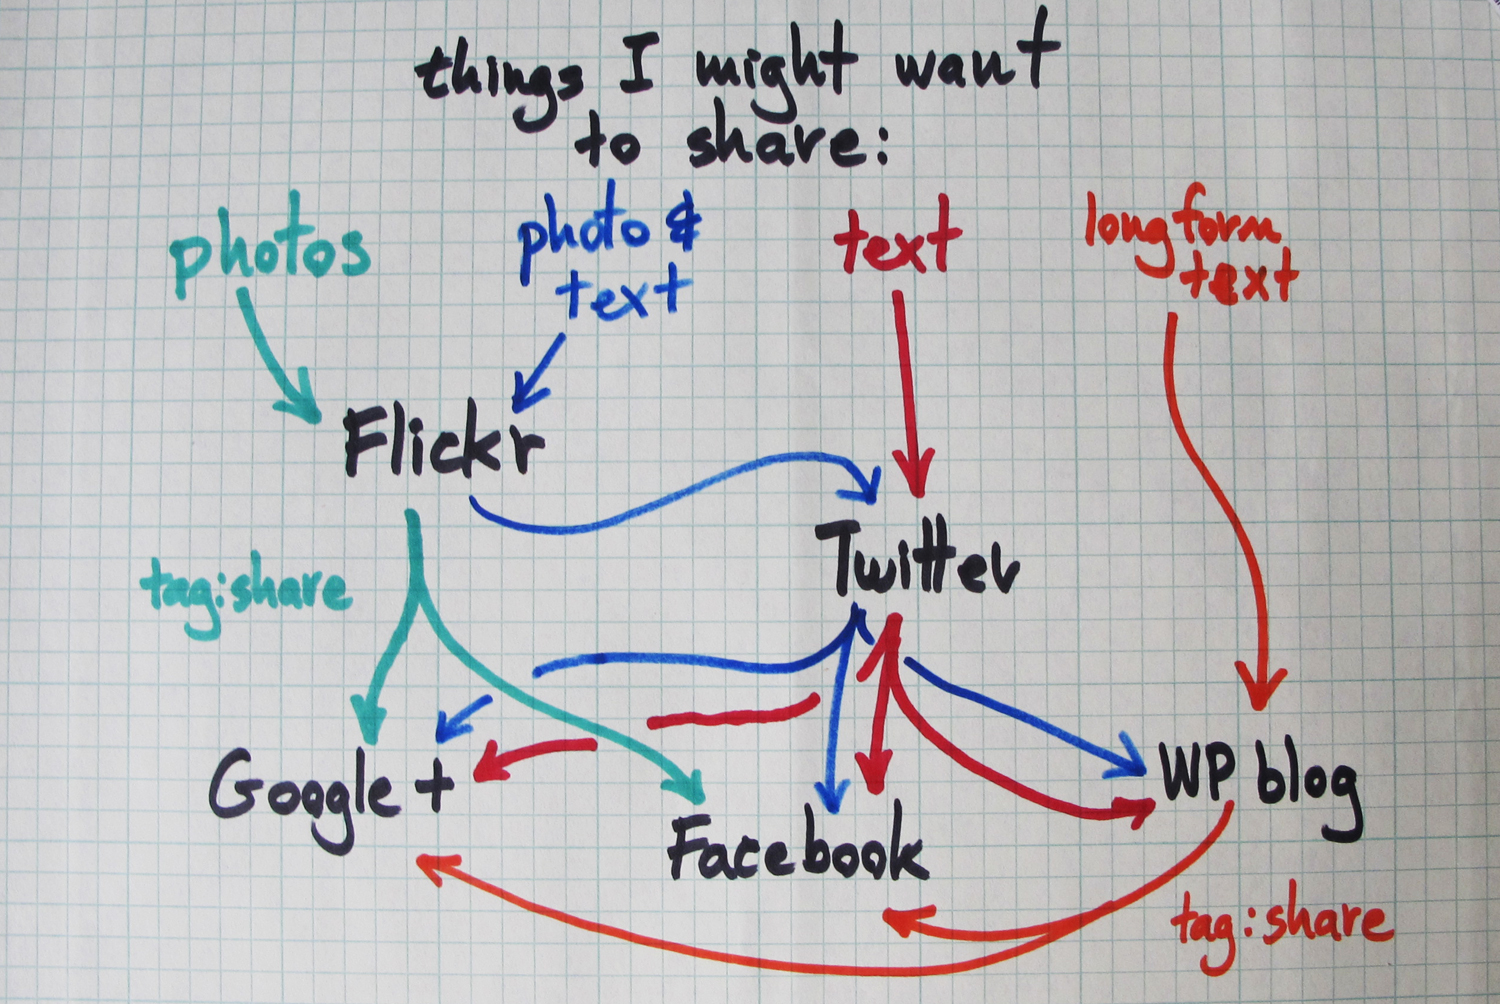 things I might want
to share:
photos
photo &
text
text
long form
text
Flickr
Twitter
tag:share
Google +
Facebook
WP blog
tag:share